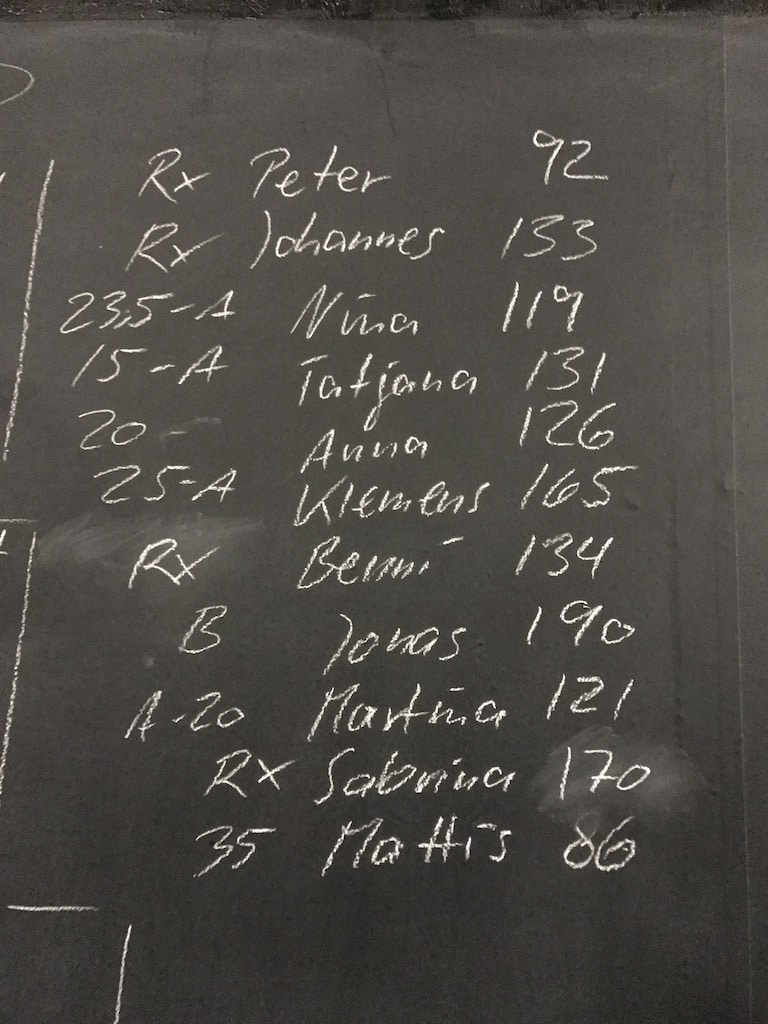 Rx Peter 92
Rx Johannes 133
23,5-A Nina 119
15-A Tatjana 131
20- Anna 126
25-A Klemens 165
Rx Benni 134
B Jonas 190
A-20 Martina 121
Rx Sabrina 170
35 Mattis 86